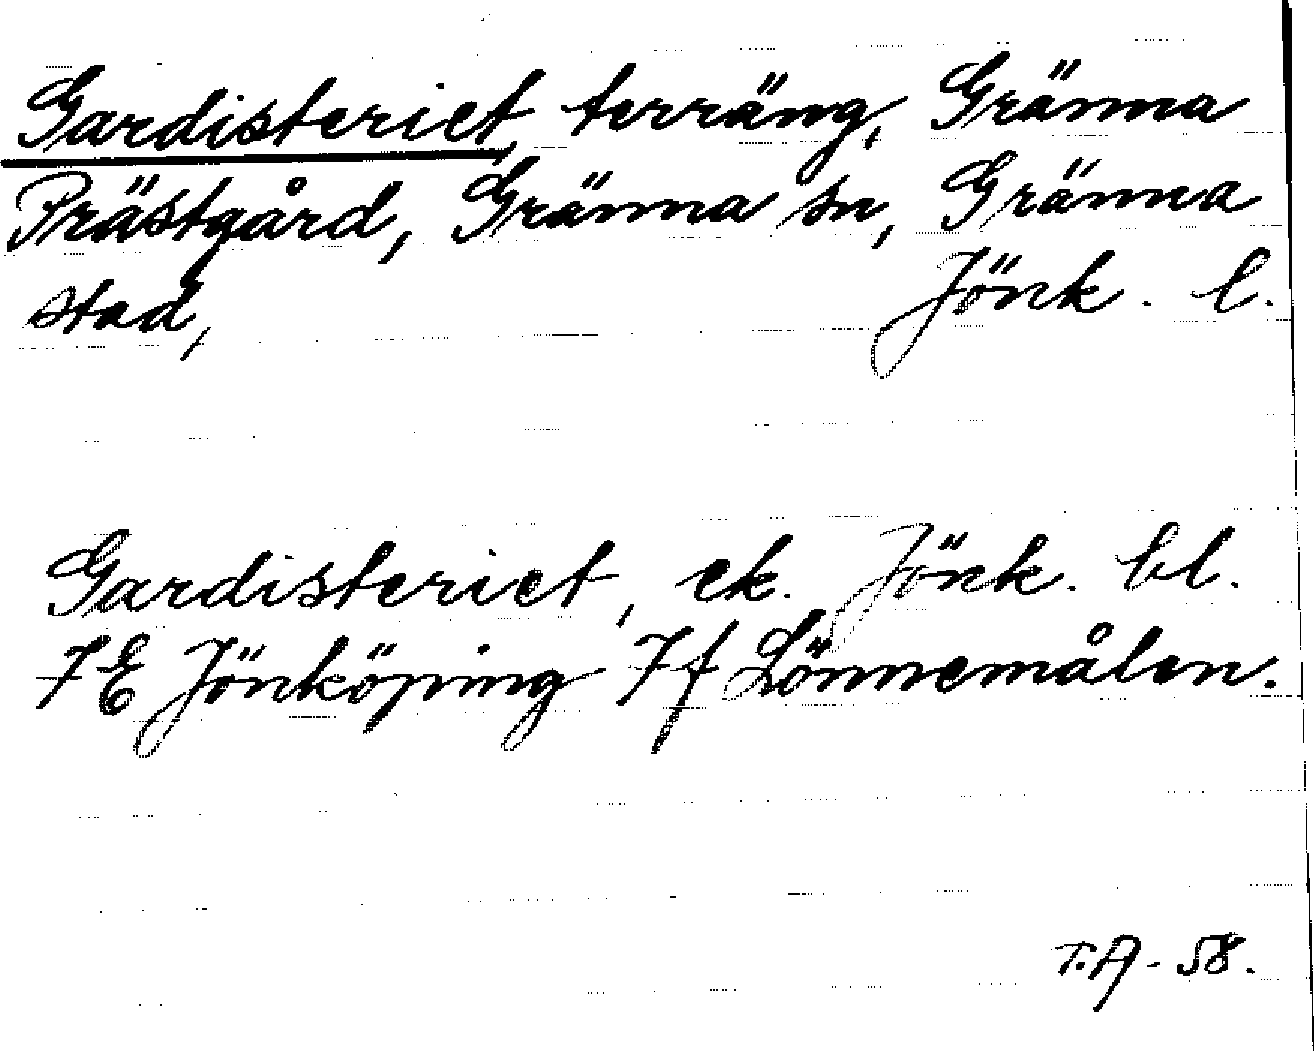 Gardisteriet, terräng, Gränna
Prästgård, Gränna sn, Gränna
stad, Jönk. l.
Gardisteriet, ek. Jönk. bl.
7E Jönköping 7f Lönnemålen.
T.A - 58.